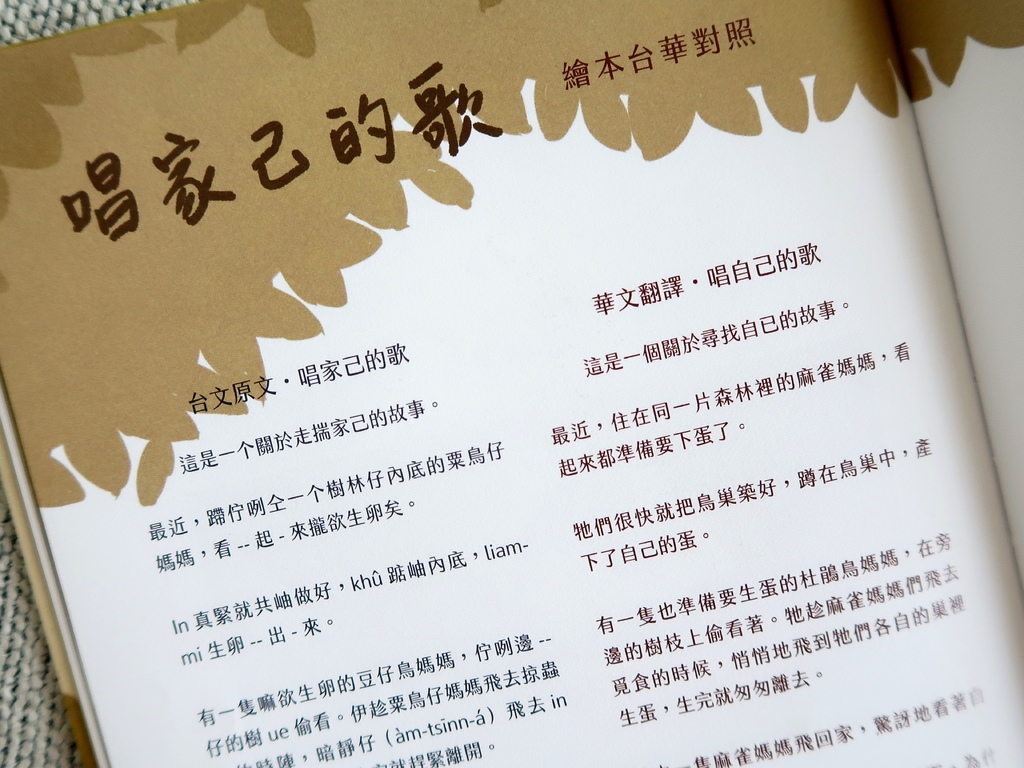 唱家己的歌
繪本台華對照
台文原文・唱家己的歌
這是一个關於走揣家己的故事。
最近,蹛佇咧仝一个樹林仔內底的粟鳥仔
媽媽,看 -- 起 - 來攏欲生卵矣。
In 真緊就共岫做好,khû 踮岫內底,liam-
mi 生卵 -- 出 - 來。
有一隻嘛欲生卵的豆仔鳥媽媽,佇咧邊 --
仔的樹 ue 偷看。伊趁粟鳥仔媽媽飛去掠蟲
的時陣,暗靜仔(àm-tsīnn-á)飛去 in
就趕緊離開。
華文翻譯・唱自己的歌
這是一個關於尋找自已的故事。
最近,住在同一片森林裡的麻雀媽媽,看
起來都準備要下蛋了。
牠們很快就把鳥巢築好,蹲在鳥巢中,產
下了自己的蛋。
有一隻也準備要生蛋的杜鵑鳥媽媽,在旁
邊的樹枝上偷看著。牠趁麻雀媽媽們飛去
覓食的時候,悄悄地飛到牠們各自的巢裡
生蛋,生完就匆匆離去。
一隻麻雀媽媽飛回家,驚訝地看著自
為什